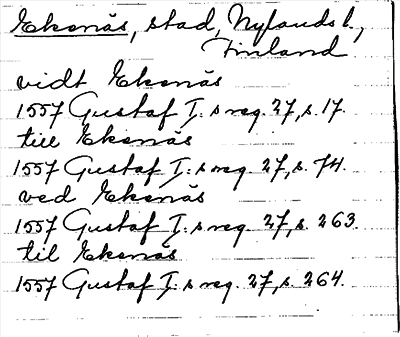 Ekenäs, stad, Nylands l.,
Finland
vidt Ekenäs
1557 Gustaf I:s reg. 27, s. 17.
till Ekenäs
1557 Gustaf I:s reg. 27, s. 74.
ved Ekenäs
1557 Gustaf I:s reg. 27, s. 263.
til Ekenäs
1557 Gustaf I:s reg. 27, s. 264.